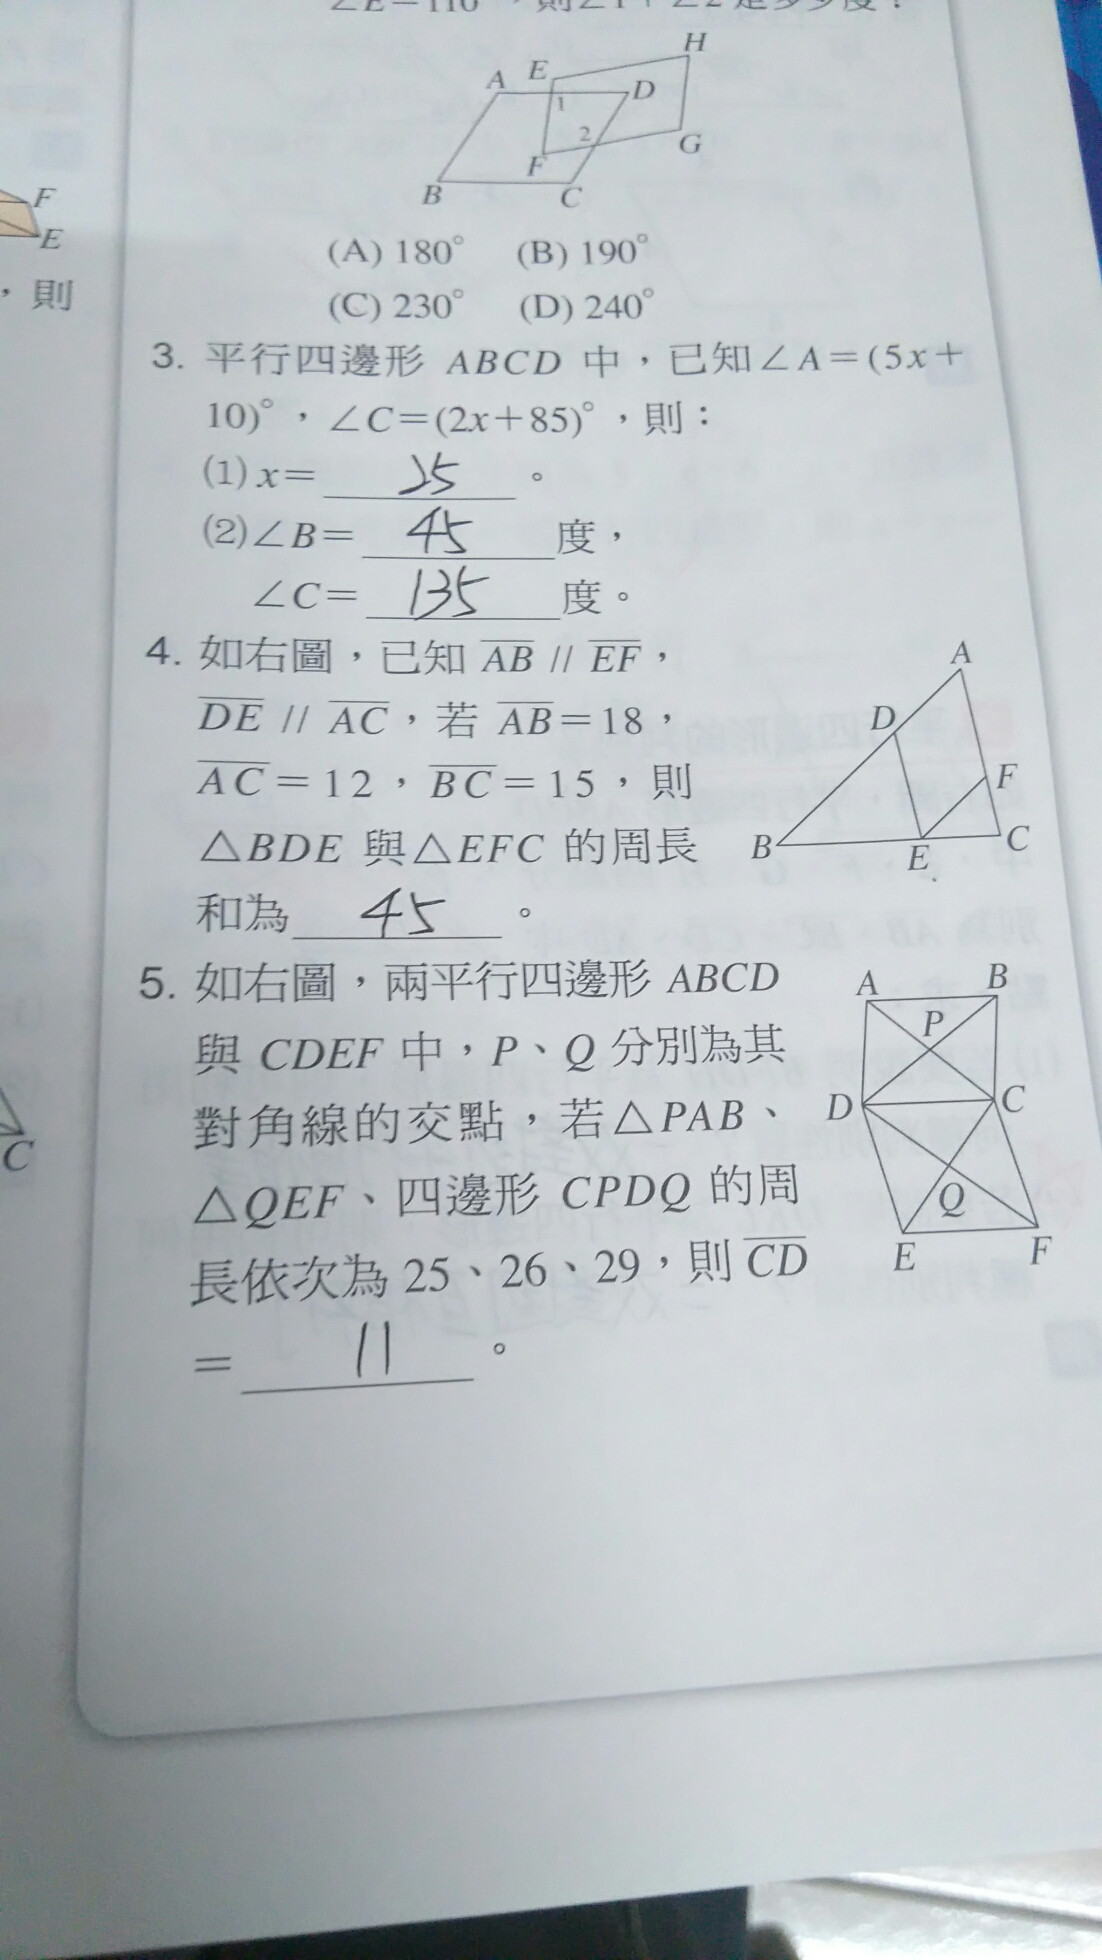 ∠E=110°，則∠1+∠2是多少度？
H
A E
D
1
2
G
F
B C
(A) 180° (B) 190°
(C) 230° (D) 240°
F
E
，則
3. 平行四邊形 ABCD 中，已知∠A=(5x+
10)°，∠C=(2x+85)°，則：
(1) x= 25 。
(2) ∠B= 45 度，
∠C= 135 度。
4. 如右圖，已知 AB // EF，
DE // AC，若 AB=18，
AC=12，BC=15，則
△BDE 與△EFC 的周長
和為 45 。
A
D
F
B E C
5. 如右圖，兩平行四邊形 ABCD
與 CDEF 中，P、Q 分別為其
對角線的交點，若△PAB、
△QEF、四邊形 CPDQ 的周
長依次為 25、26、29，則 CD
= 11 。
A B
P
D C
Q
E F
C